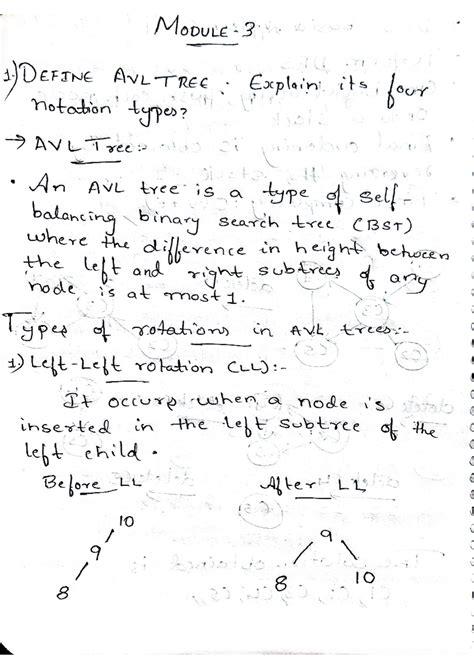 MODULE-3
1.) DEFINE AVL TREE. Explain its four
notation types?
→ AVL Tree:-
• An AVL tree is a type of self-
balancing binary search tree (BST)
where the difference in height between
the left and right subtrees of any
node is at most 1.
Types of rotations in AVL trees:-
1) Left-Left rotation (LL):-
It occurs when a node is
inserted in the left subtree of the
left child.
Before LL After LL
10
9
8
9
8 10